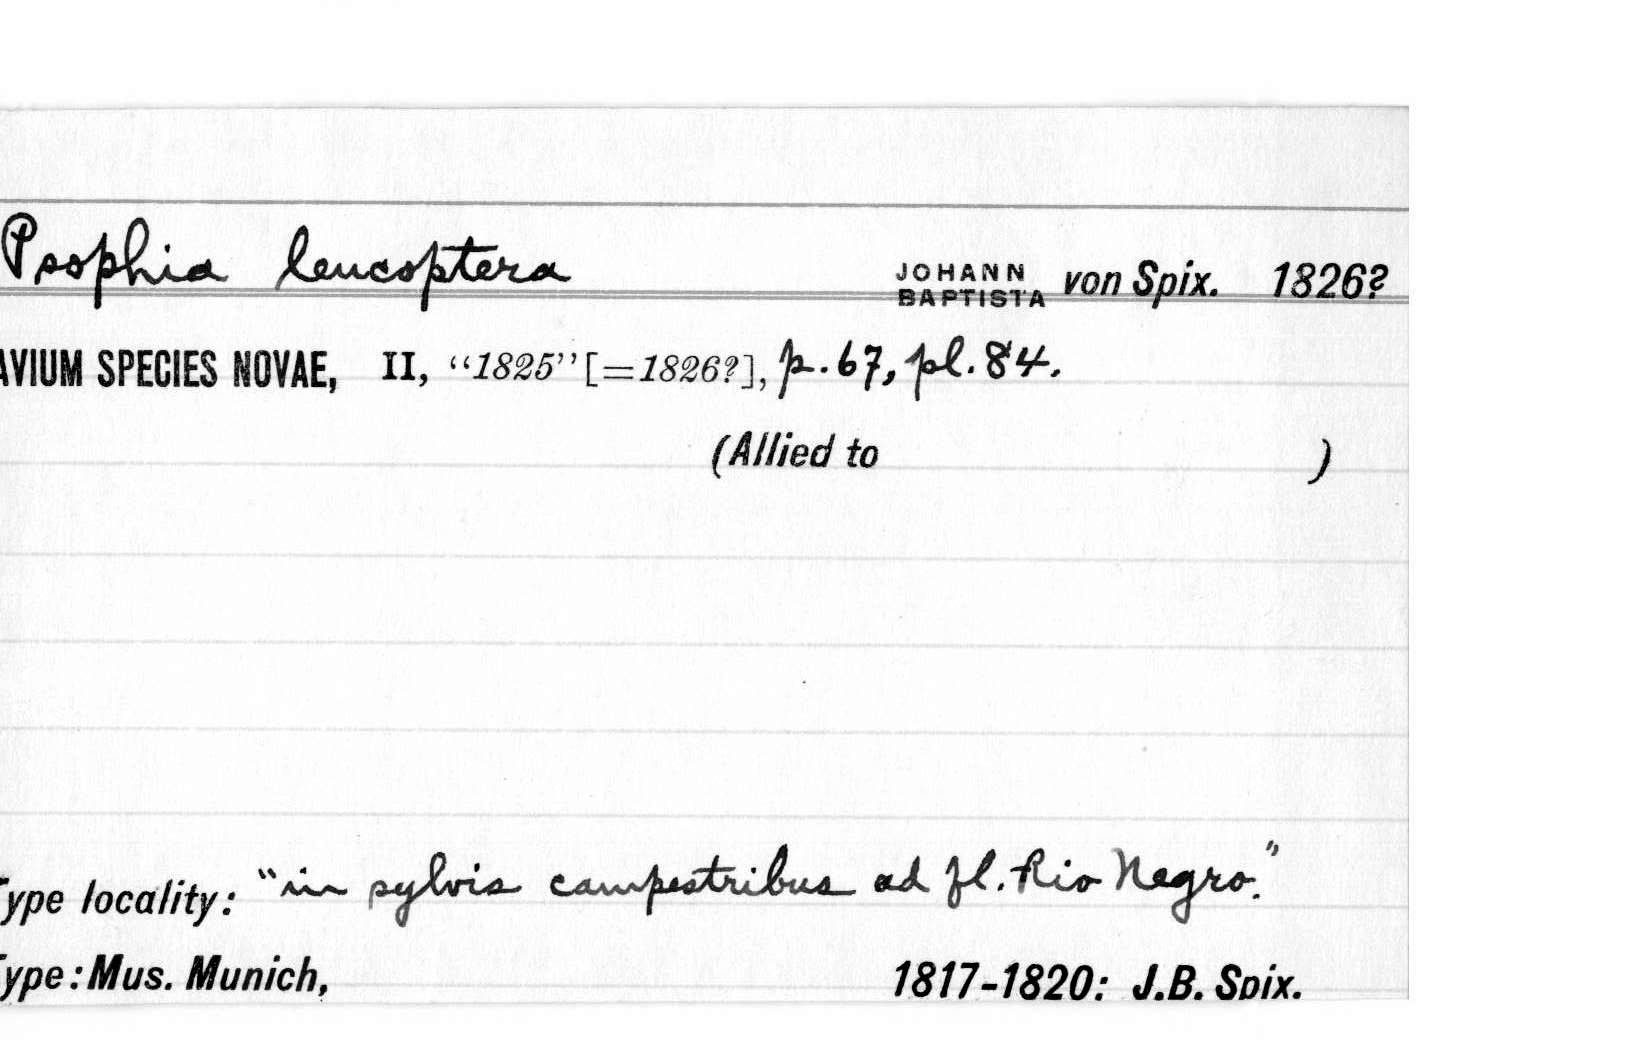 Psophia leucoptera JOHANN BAPTISTA von Spix. 1826?
AVIUM SPECIES NOVAE, II, “1825” [=1826?], p. 67, pl. 84.
(Allied to )
Type locality: “in sylvis campestribus ad fl. Rio Negro.”
Type: Mus. Munich, 1817-1820: J.B. Spix.